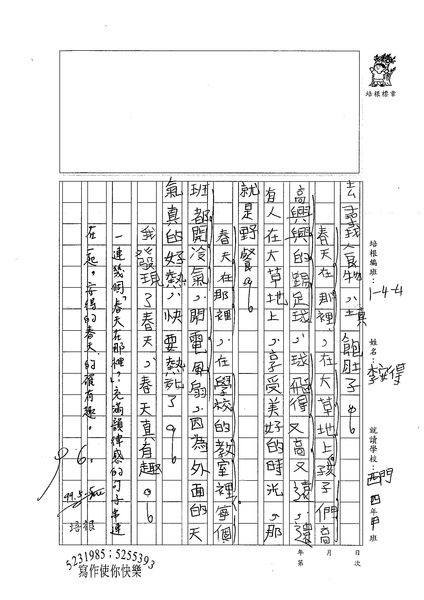 培根標章
培根編班：1-4-4
姓名：李安得
就讀學校：西門四年甲班
年 月 日
第 次
去尋找食物，填飽肚子。
春天在那裡，在大草地上，孩子們高
高興興的踢足球，球飛得又高又遠，還
有人在大草地上，享受美好的時光，那
就是野餐。
春天在那裡，在學校的教室裡，每個
班都開冷氣，開電風扇，因為外面的天
氣真的好熱，快要熱死了。
我發現了春天，春天真有趣。
一連幾個「春天在那裡？」充滿韻律感的句子串連
在一起，安得的春天，的確有趣。
96.
培根
5231985；5255393
寫作使你快樂